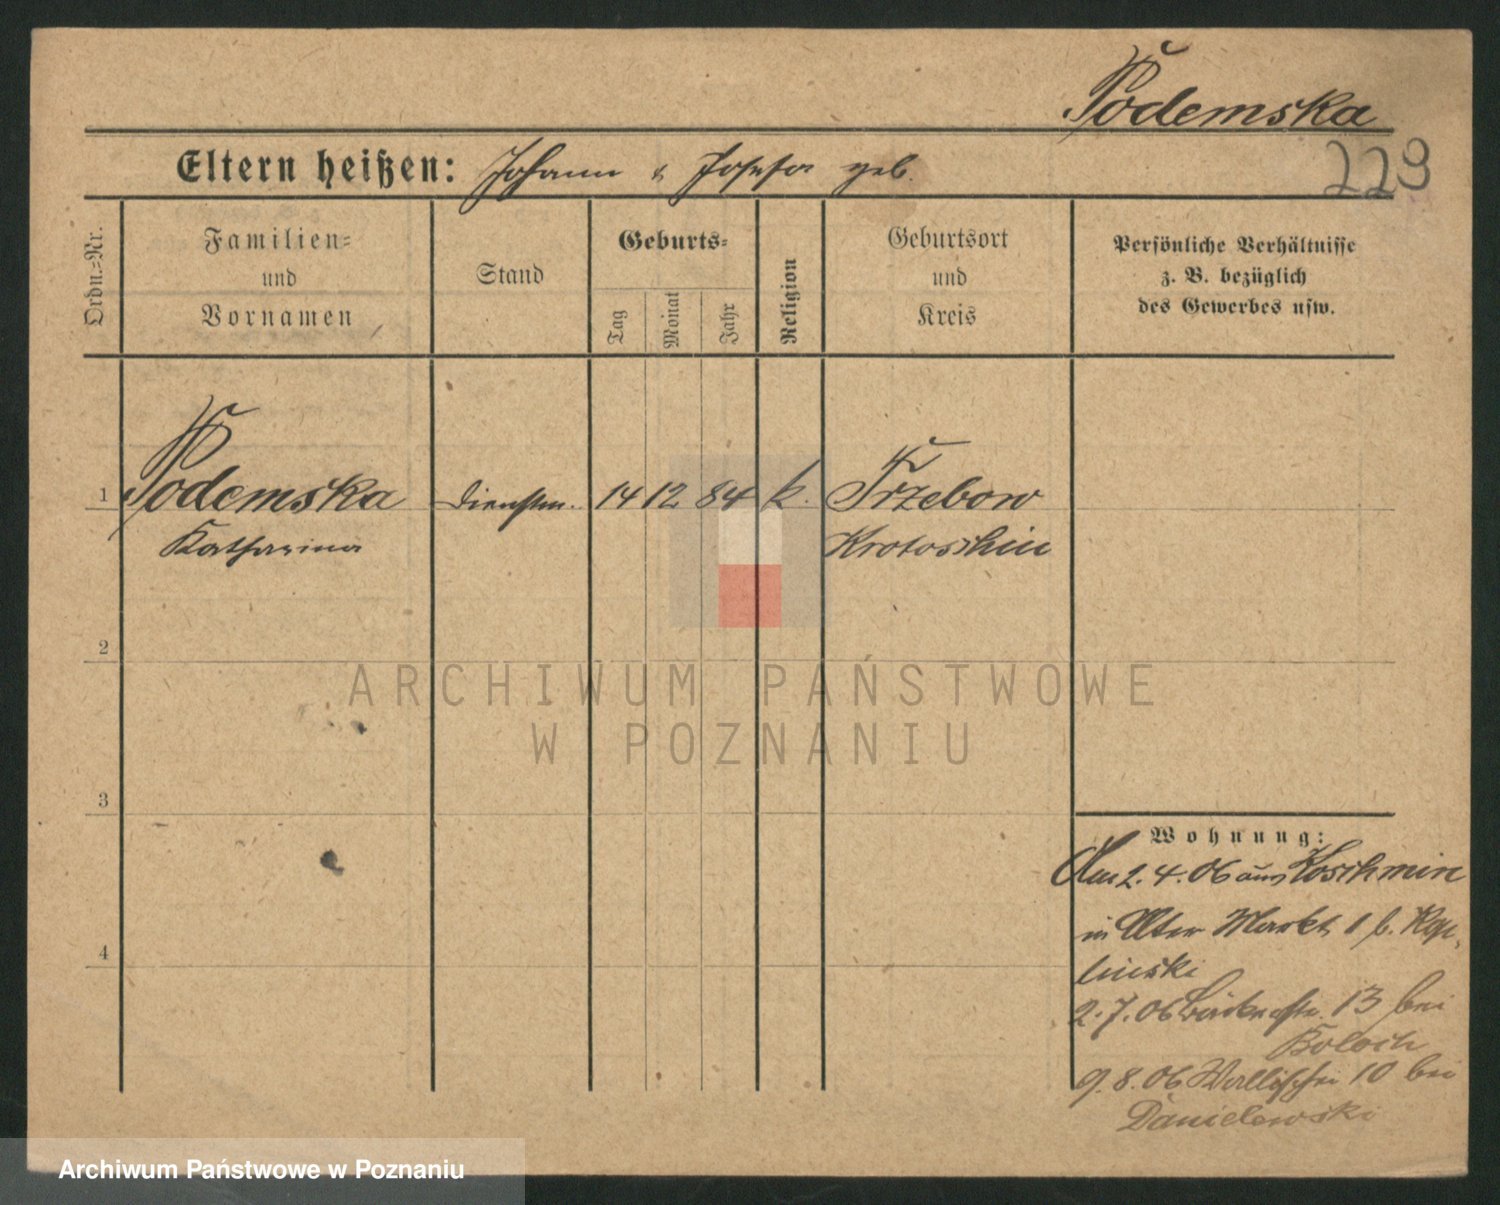 Podemska
Eltern heißen: Johann & Josefa geb.
223
Ordn.-Nr.
Familien-
und
Vornamen
Stand
Geburts-
Tag
Monat
Jahr
Religion
Geburtsort
und
Kreis
Persönliche Verhältnisse
z. B. bezüglich
des Gewerbes usw.
1 Podemska Dienstm. 14 12 84 k. Trzebow
Katharina Krotoschin
2
3
4
Wohnung:
2.4.06 aus Koschmin
in Alter Markt 1 b. Kap-
linski
2.7.06 13 bei
9.8.06 Wallischei 10 bei
Danielewski
ARCHIWUM PAŃSTWOWE
W POZNANIU
Archiwum Państwowe w Poznaniu